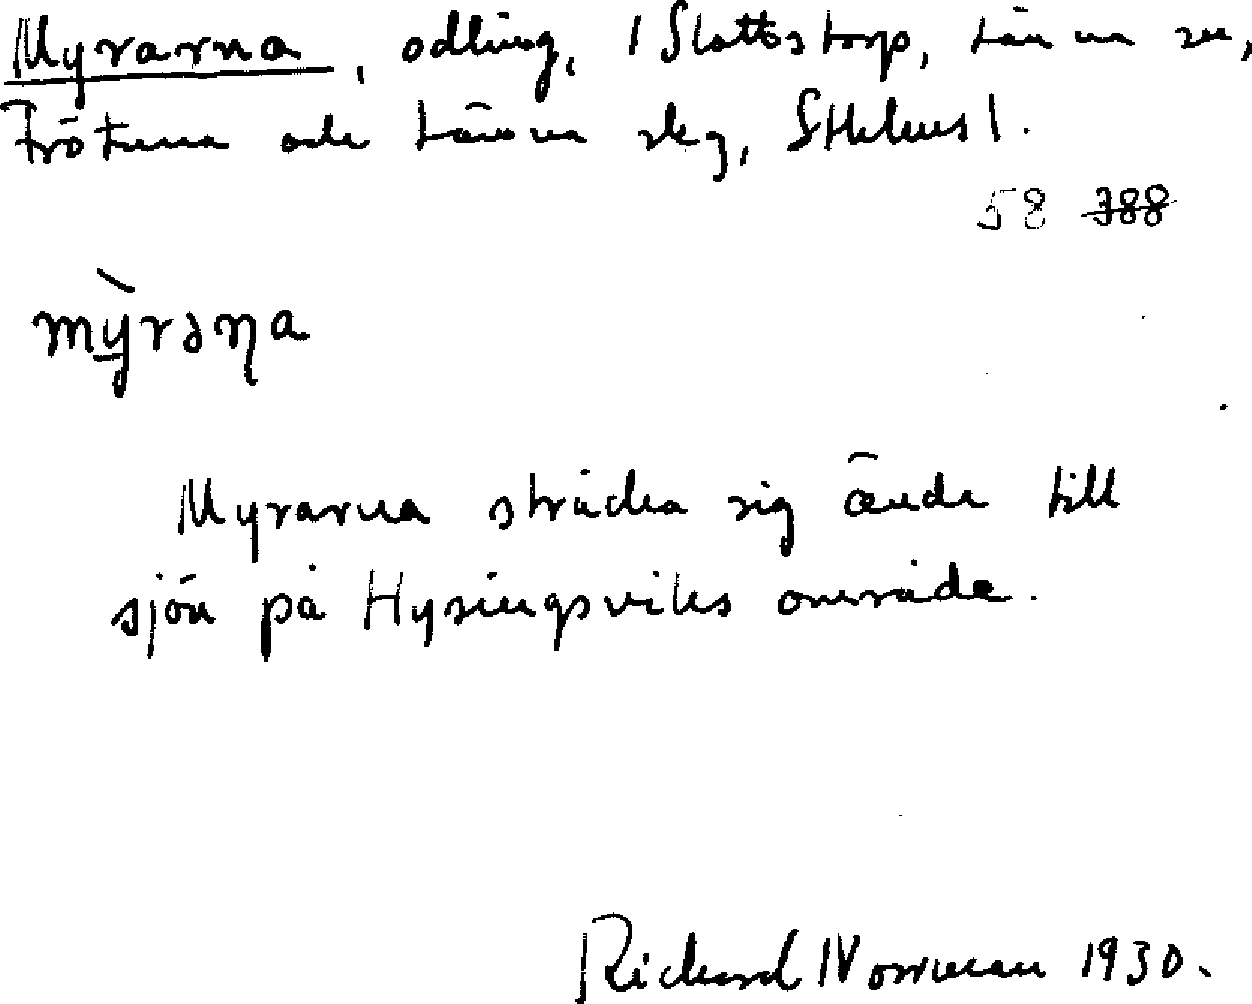 Myrarna, odling, 1 Slottstorp, Länna sn,
Frötuna och Länna skg, Sthlms l.
58 388
mỳ̠rəṇa
Myrarna sträcka sig ände till
sjön på Hysingsviks område.
Richard Norrman 1930.